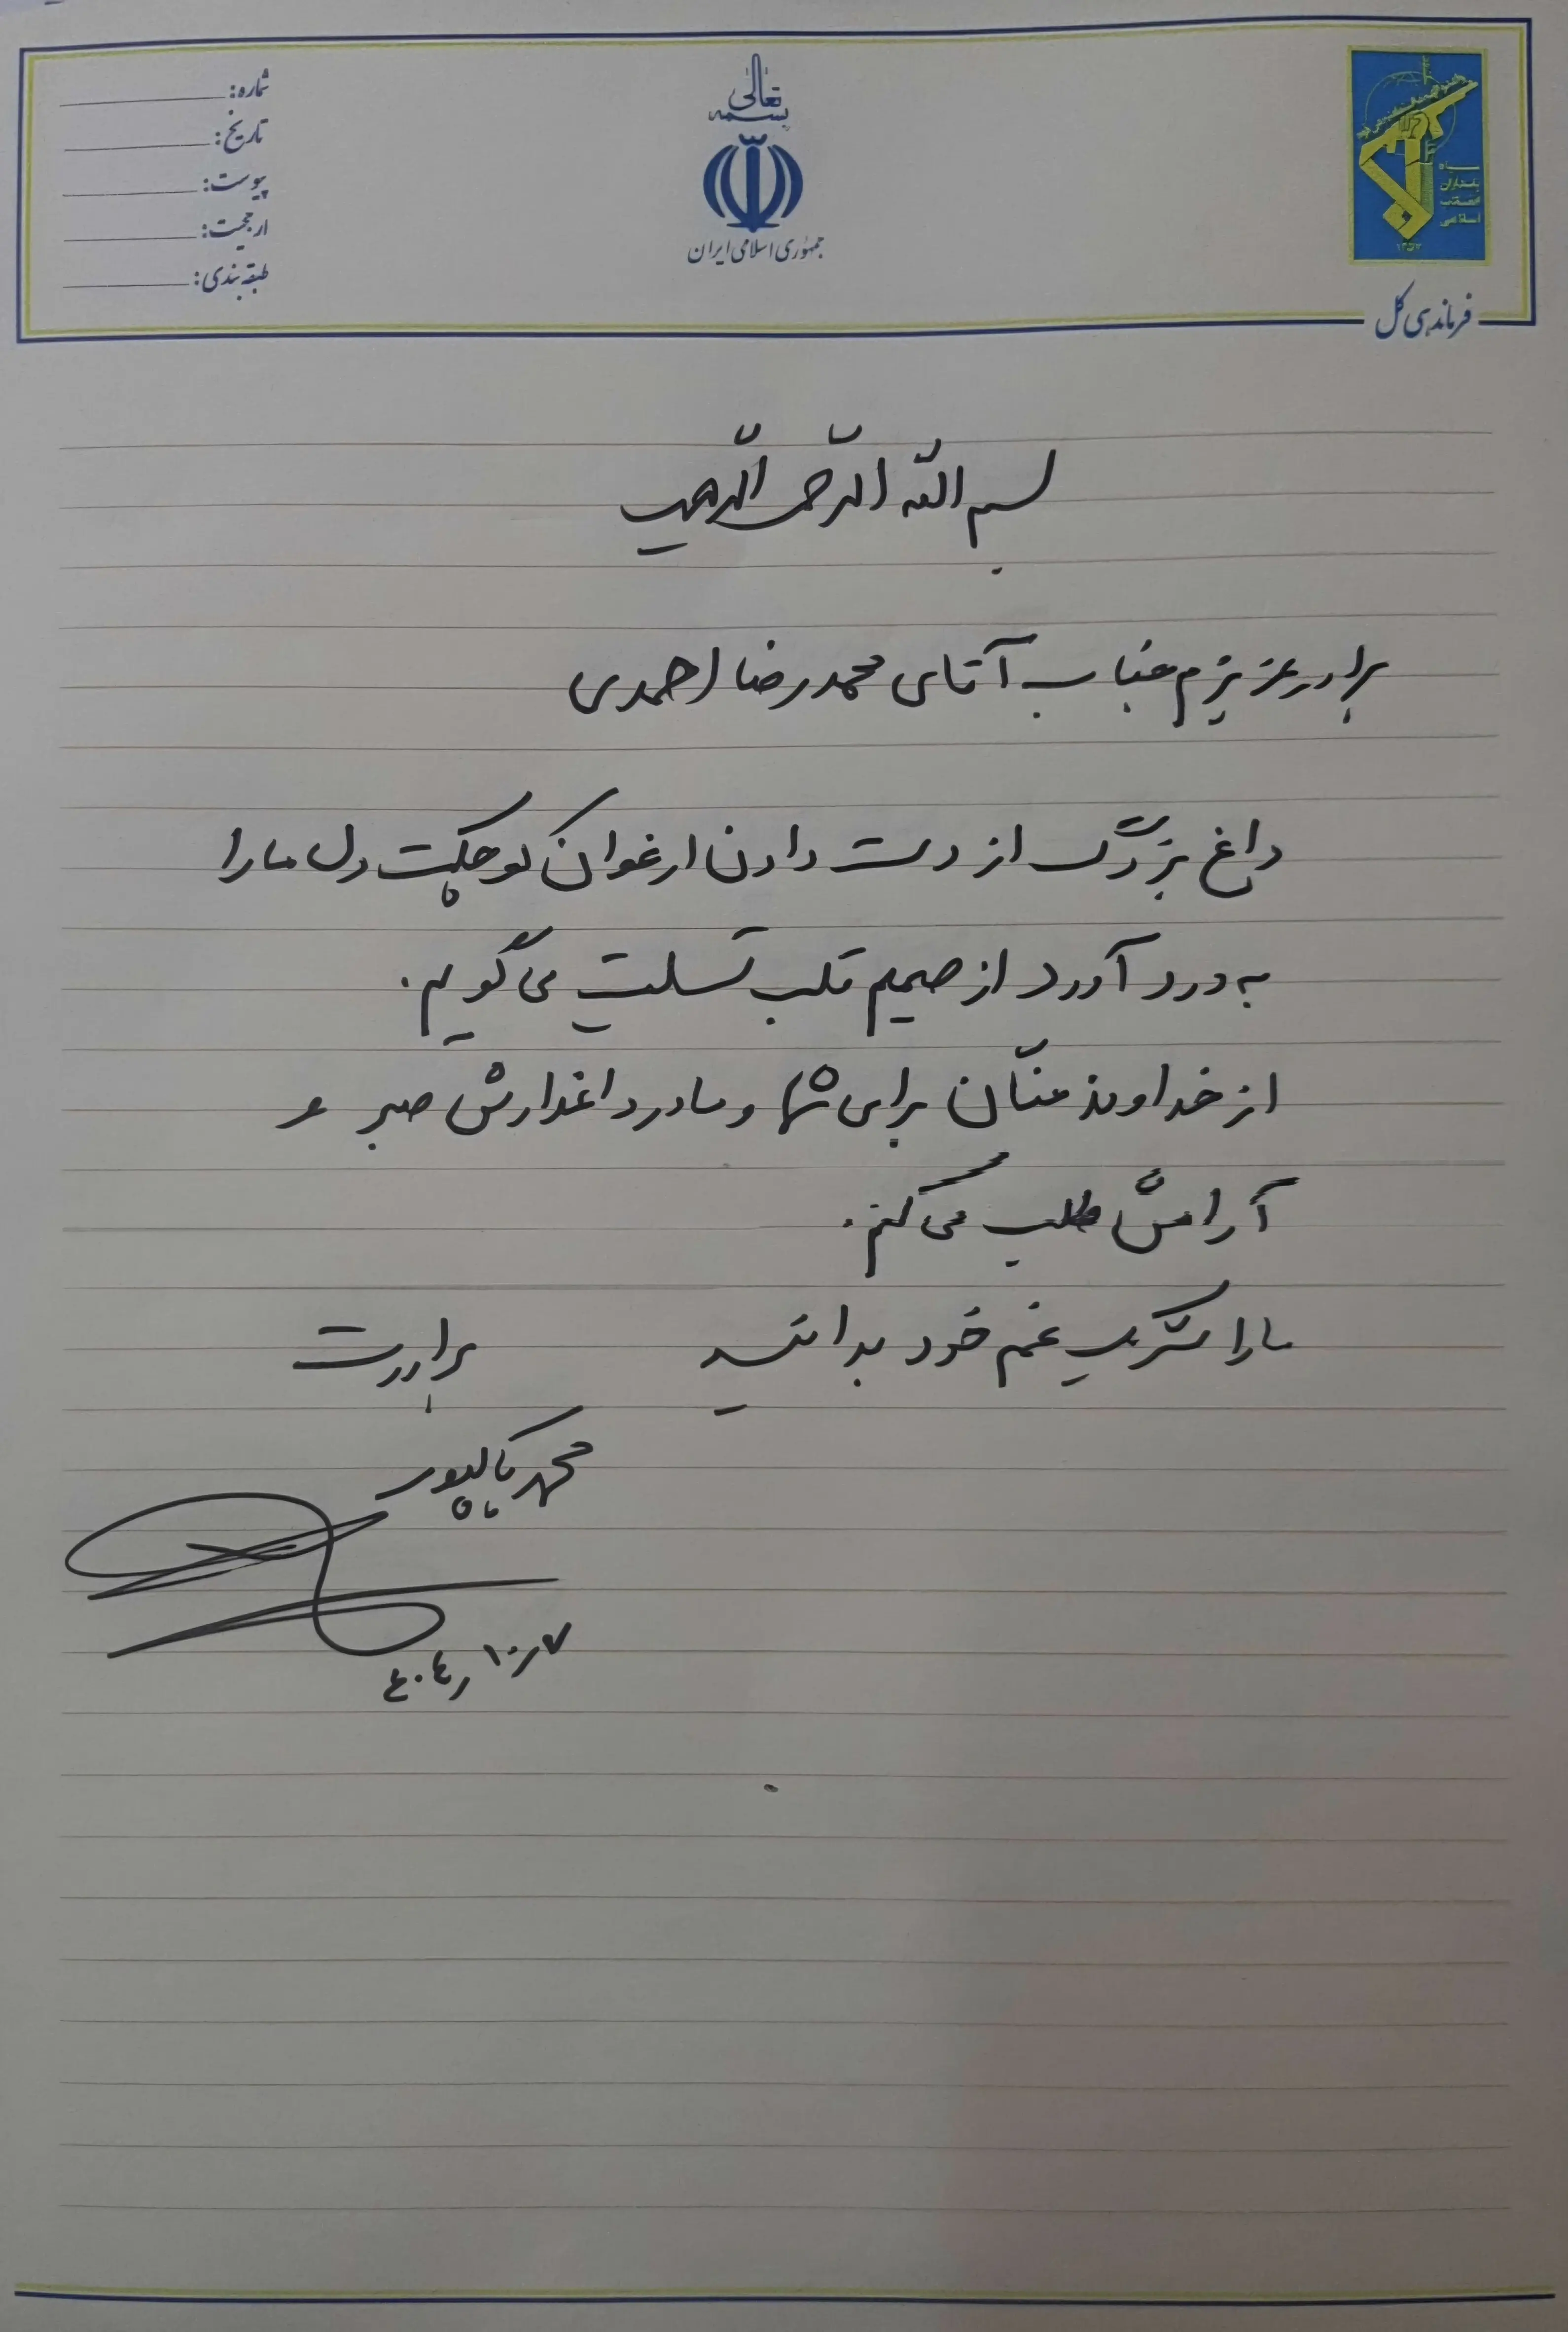 بسمه تعالی
جمهوری اسلامی ایران
شماره:
تاریخ:
پیوست:
ارجحیت:
طبقه بندی:
سپاه
پاسداران
انقلاب
اسلامی
۱۳۵۷
فرماندهی کل
بسم الله الرّحمن الرّحیم
برادر عزیزم جناب آقای محمدرضا احمدی
داغ بزرگ از دست دادن ارغوان کوچکت دل ما را
به درد آورد از صمیم قلب تسلیت می گویم.
از خداوند منّان برای شما و مادر داغدارش صبر و
آرامش طلب می کنم.
ما را شریک غم خود بدانید
برادرت
محمد پاکپور
۴۰۴/۱۰/۷